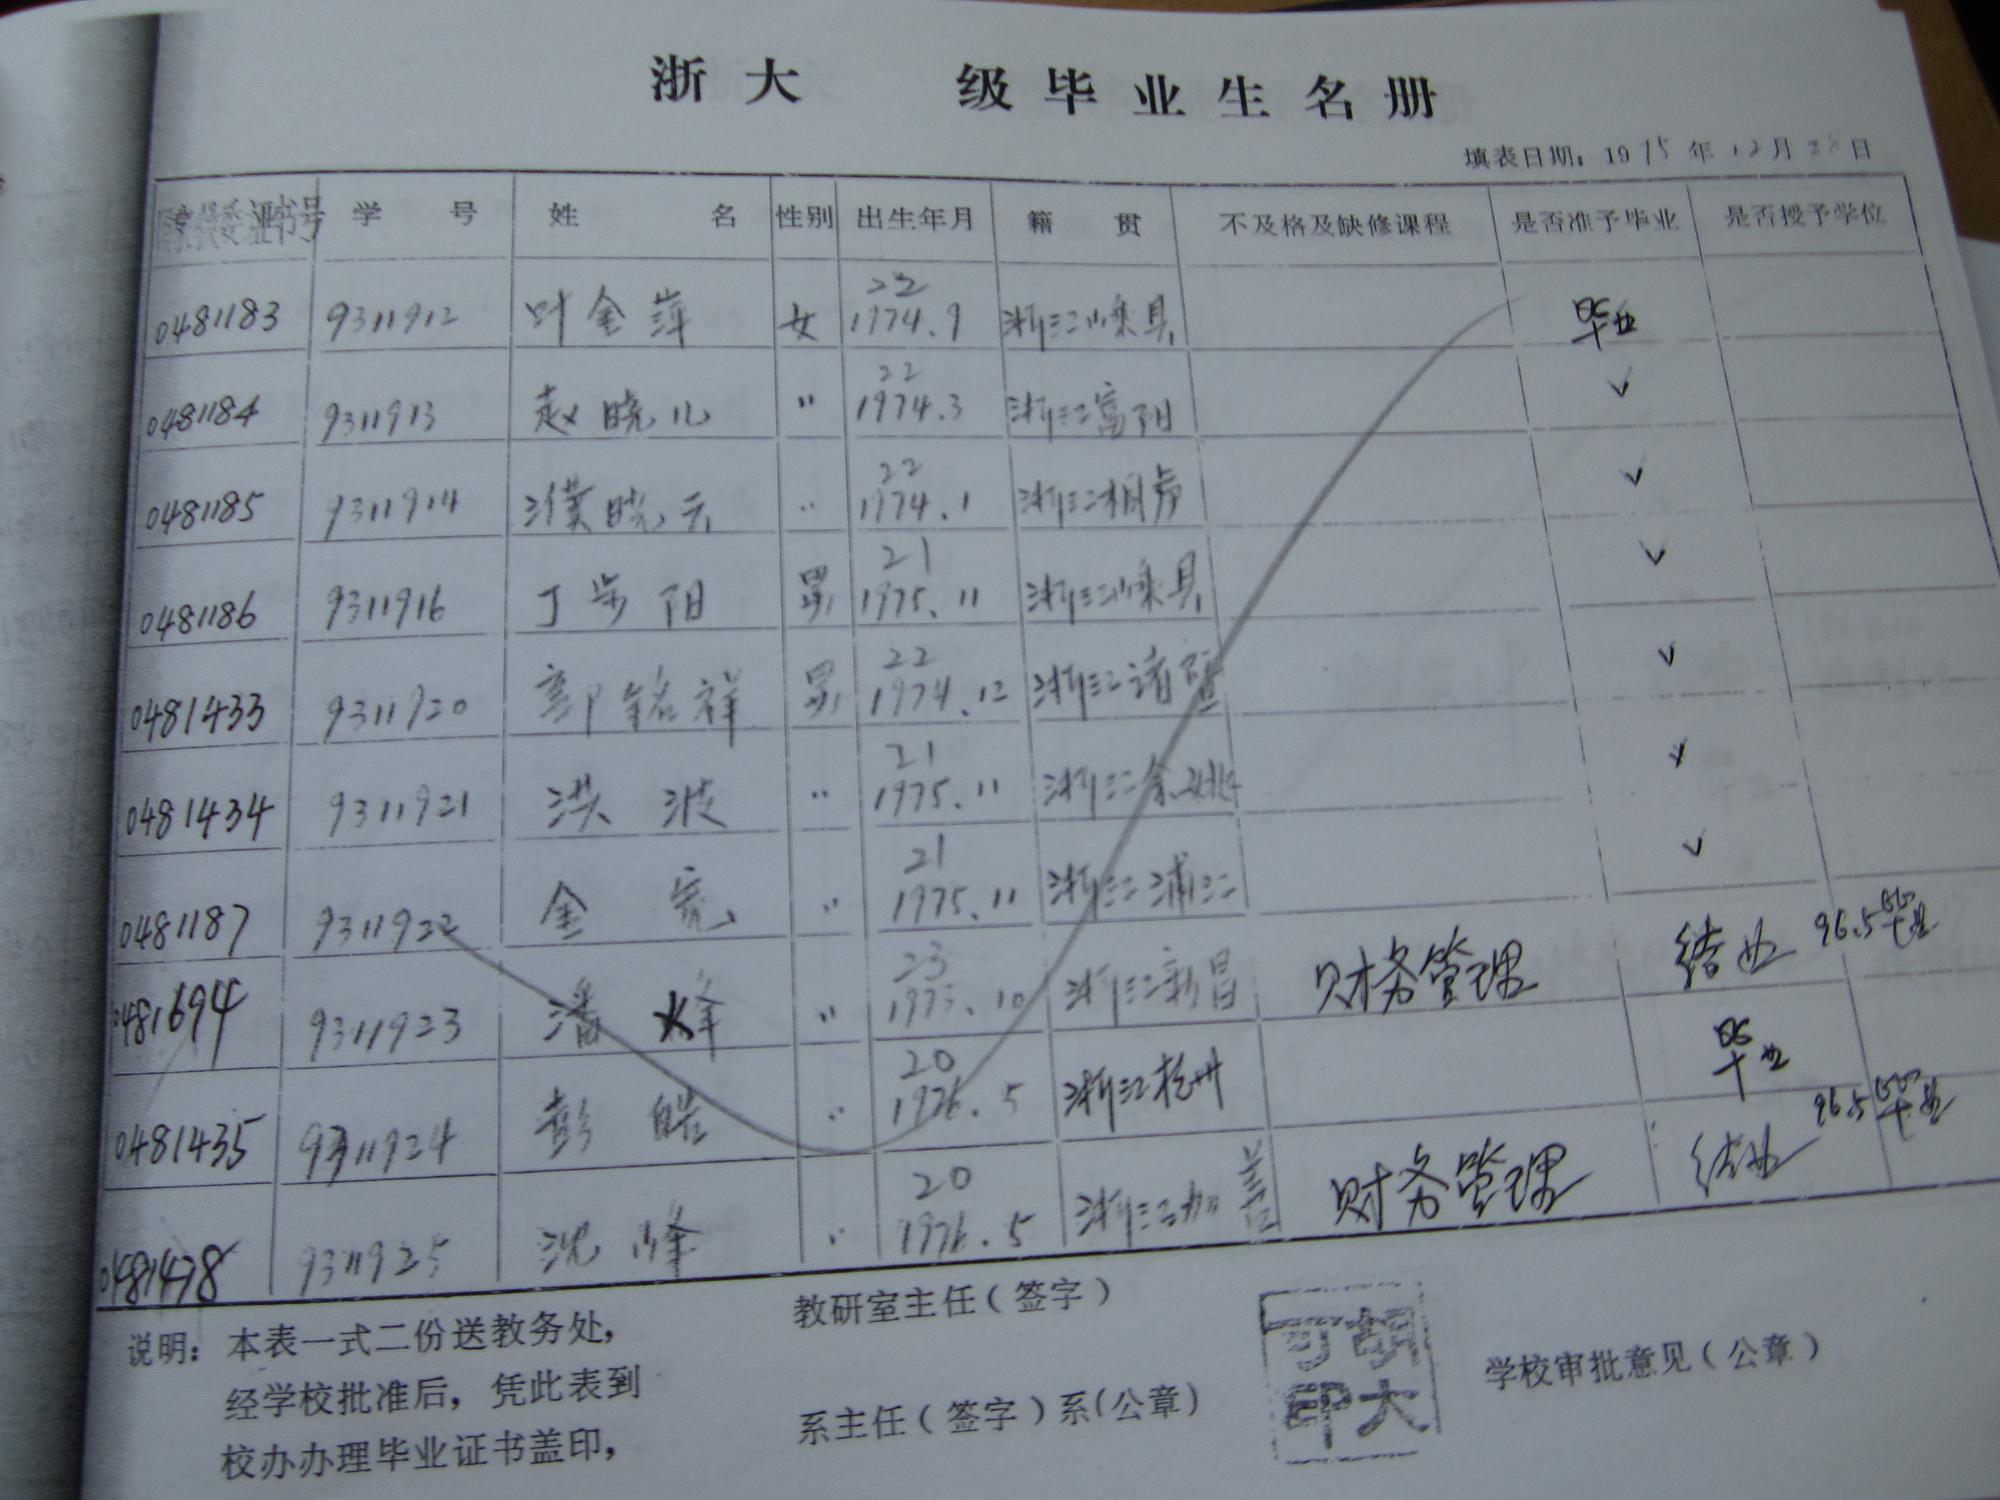 浙大 级毕业生名册
填表日期：1995年12月28日
证书号 学号 姓名 性别 出生年月 籍贯 不及格及缺修课程 是否准予毕业 是否授予学位
0481183 9311912 叶金萍 女 22 1974.9 浙江 毕业
0481184 9311913 赵晓儿 〃 22 1974.3 浙江富阳 ✓
0481185 9311914 濮晓云 〃 22 1974.1 浙江桐庐 ✓
0481186 9311916 丁 阳 男 21 1975.11 浙江 ✓
0481433 9311920 郭铭祥 男 22 1974.12 浙江诸暨 ✓
0481434 9311921 洪波 〃 21 1975.11 浙江余姚 ✓
0481187 9311922 金 〃 21 1975.11 浙江浦江 ✓
0481694 9311923 潘烽 〃 23 1973.10 浙江新昌 财务管理 结业 96.5毕业
0481435 9311924 彭皓 〃 20 1976.5 浙江杭州 毕业
9311925 沈峰 〃 20 1976.5 浙江 善 财务管理 结业 96.5毕业
说明：本表一式二份送教务处，
经学校批准后，凭此表到
校办办理毕业证书盖印，
教研室主任（签字）
系主任（签字）系（公章）
胡大可印
学校审批意见（公章）